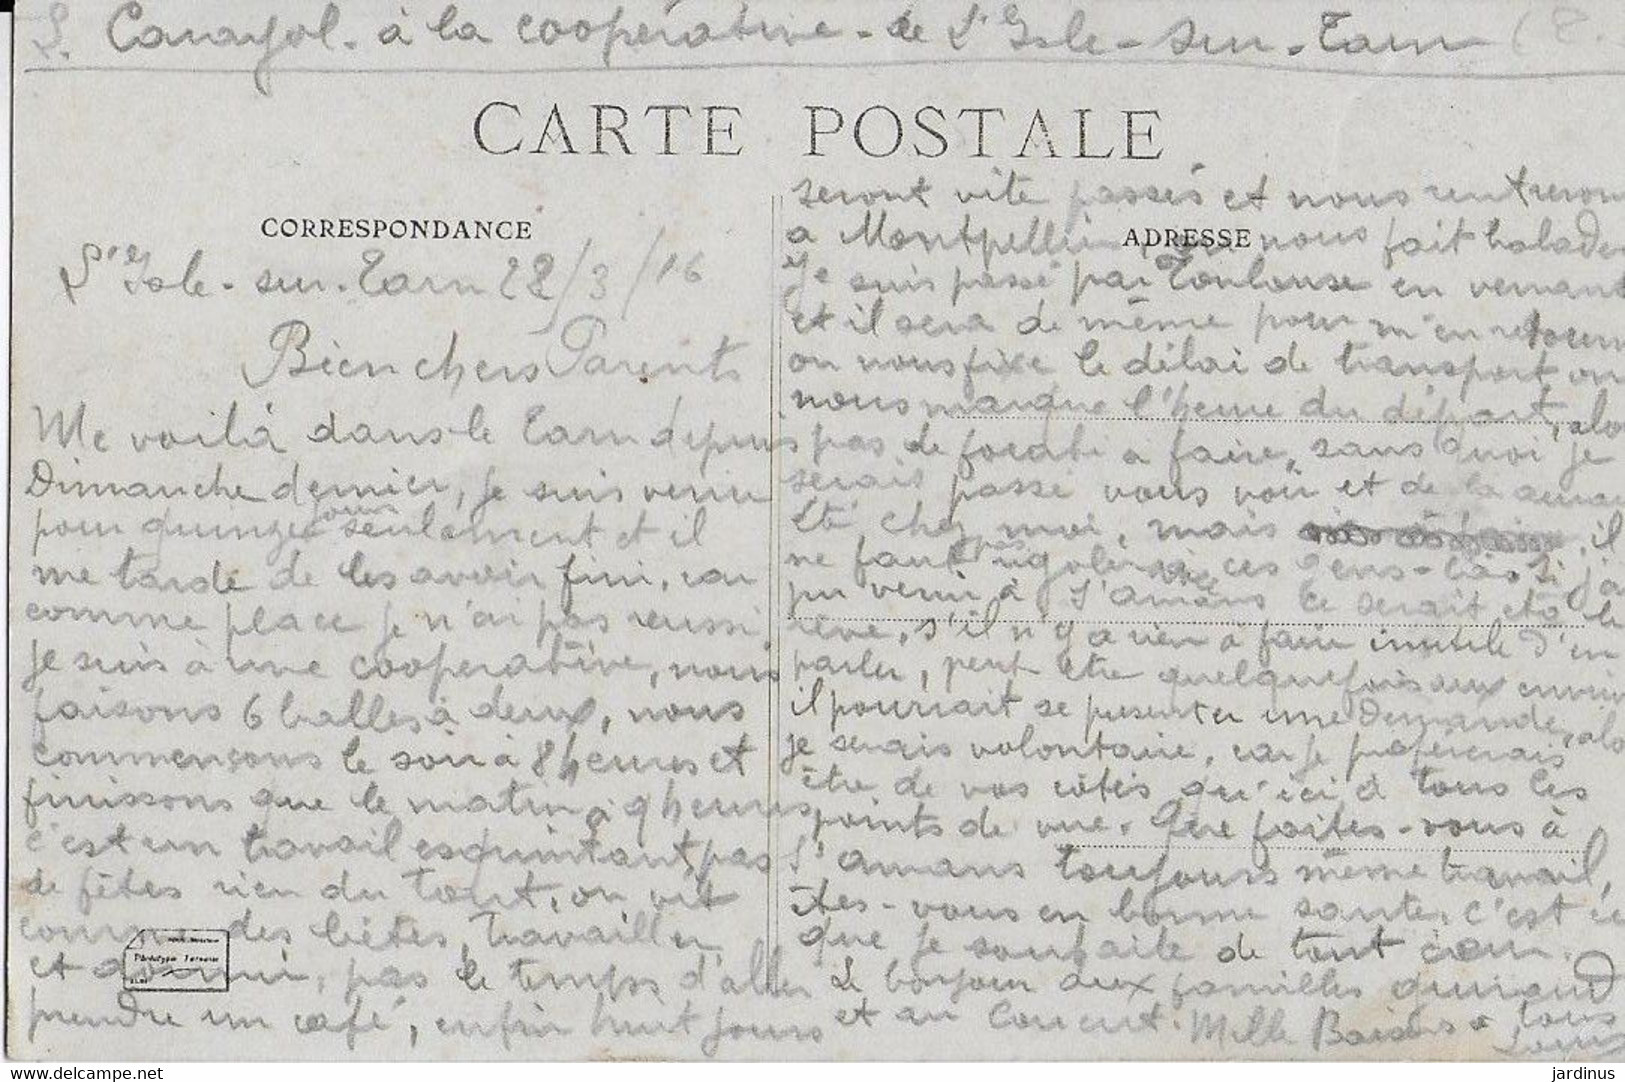 Canayol - à la coopérative - de L'Isle - sur - Tarn
CARTE POSTALE
CORRESPONDANCE
L'Isle - sur - Tarn 28/3/16
Bien chers Parents
Me voilà dans le Tarn depuis
Dimanche dernier, je suis venu
pour quinze jours seulement et il
me tarde de les avoir fini, car
comme place je n'ai pas reussi,
je suis à une cooperative, nous
faisons 6 balles à deux, nous
commençons le soir à 8 heures et
finissons que le matin à 9 heures
c'est un travail esquintant, pas
de fêtes rien du tout, on vit
comme des bêtes, travailler
et dormir, pas le temps d'aller
prendre un café, enfin huit jours
seront vite passés et nous rentrerons
ADRESSE
a Montpellier, nous fait balader
Je suis passé par Toulouse en venant
et il sera de même pour m'en retourn
on nous fixe le délai de transport on
nous marque l'heure du départ, alo
pas de à faire, sans quoi je
serais passé vous voir et de la
été chez moi, mais il
ne faut pas rigoler avec ces gens-là. Si j'a
pu venir à S'Amans ce serait été le
rêve, s'il n'y a rien à faire inutile d'en
parler, peut etre quelquefois aux environ
il pourrait se presenter une demande, alo
je serais volontaire, car je préfèrerais
être de vos cotés qu'ici à tous les
points de vue. Que faites-vous à
S'Amans toujours même travail,
êtes-vous en bonne santé, c'est ce
que je souhaite de tout cœur.
Le bonjour aux familles
et au Mille Baisers à tous
Louis
jardinus